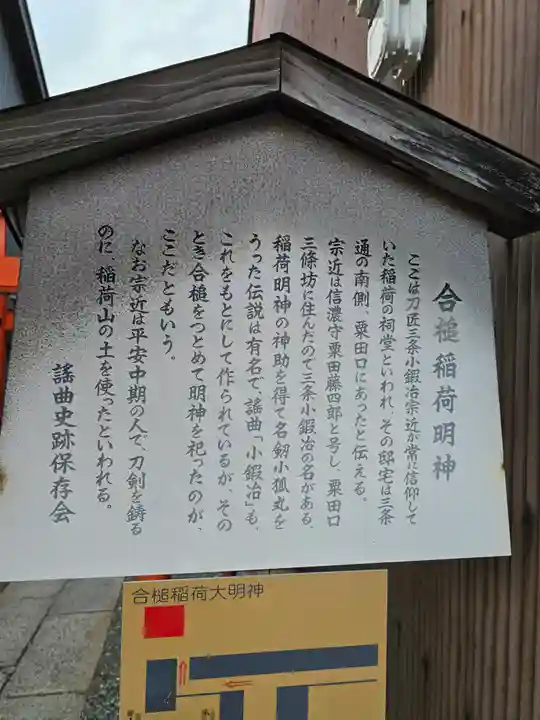 合槌稲荷明神
ここは刀匠三条小鍛冶宗近が常に信仰して
いた稲荷の祠堂といわれ、その邸宅は三条
通の南側、粟田口にあったと伝える。
宗近は信濃守粟田藤四郎と号し、粟田口
三條坊に住んだので三条小鍛冶の名がある、
稲荷明神の神助を得て名剱小狐丸を
うった伝説は有名で、謡曲「小鍛冶」も、
これをもとにして作られているが、その
とき合槌をつとめて明神を祀ったのが、
ここだともいう。
なお宗近は平安中期の人で、刀剣を鋳る
のに、稲荷山の土を使ったといわれる。
謡曲史跡保存会
合槌稲荷大明神